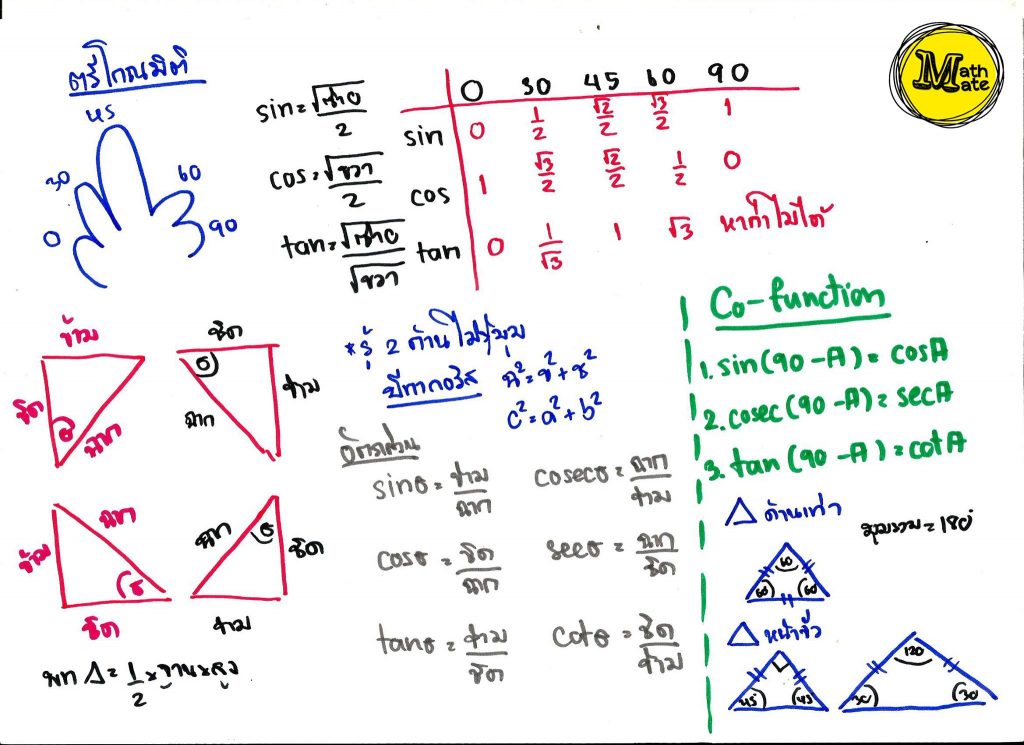 ตรีโกณมิติ
45
30
60
0
90
sin = √ซ้าย / 2
cos = √ขวา / 2
tan = √ซ้าย / √ขวา
0 30 45 60 90
sin 0 1/2 √2/2 √3/2 1
cos 1 √3/2 √2/2 1/2 0
tan 0 1/√3 1 √3 หาค่าไม่ได้
Math
Mate
ข้าม
ชิด
θ
ฉาก
ชิด
θ
ข้าม
ฉาก
ข้าม
ฉาก
θ
ชิด
ฉาก
θ
ชิด
ข้าม
พท Δ = 1/2 × ฐาน × สูง
*รู้ 2 ด้านไม่รู้มุม
พีทากอรัส
ฉ² = ข² + ช²
c² = a² + b²
อัตราส่วน
sinθ = ข้าม/ฉาก
cosecθ = ฉาก/ข้าม
cosθ = ชิด/ฉาก
secθ = ฉาก/ชิด
tanθ = ข้าม/ชิด
cotθ = ชิด/ข้าม
Co-function
1. sin(90 - A) = cosA
2. cosec(90 - A) = secA
3. tan(90 - A) = cotA
Δ ด้านเท่า
มุมรวม = 180°
60
60 60
Δ หน้าจั่ว
45° 45
120
30° 30°